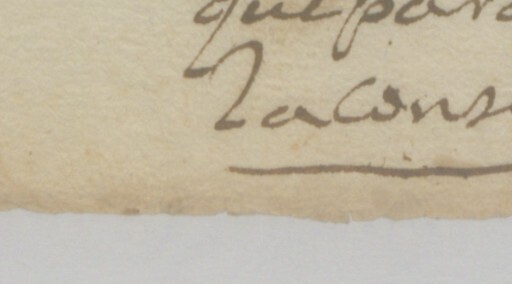 que para
la cons